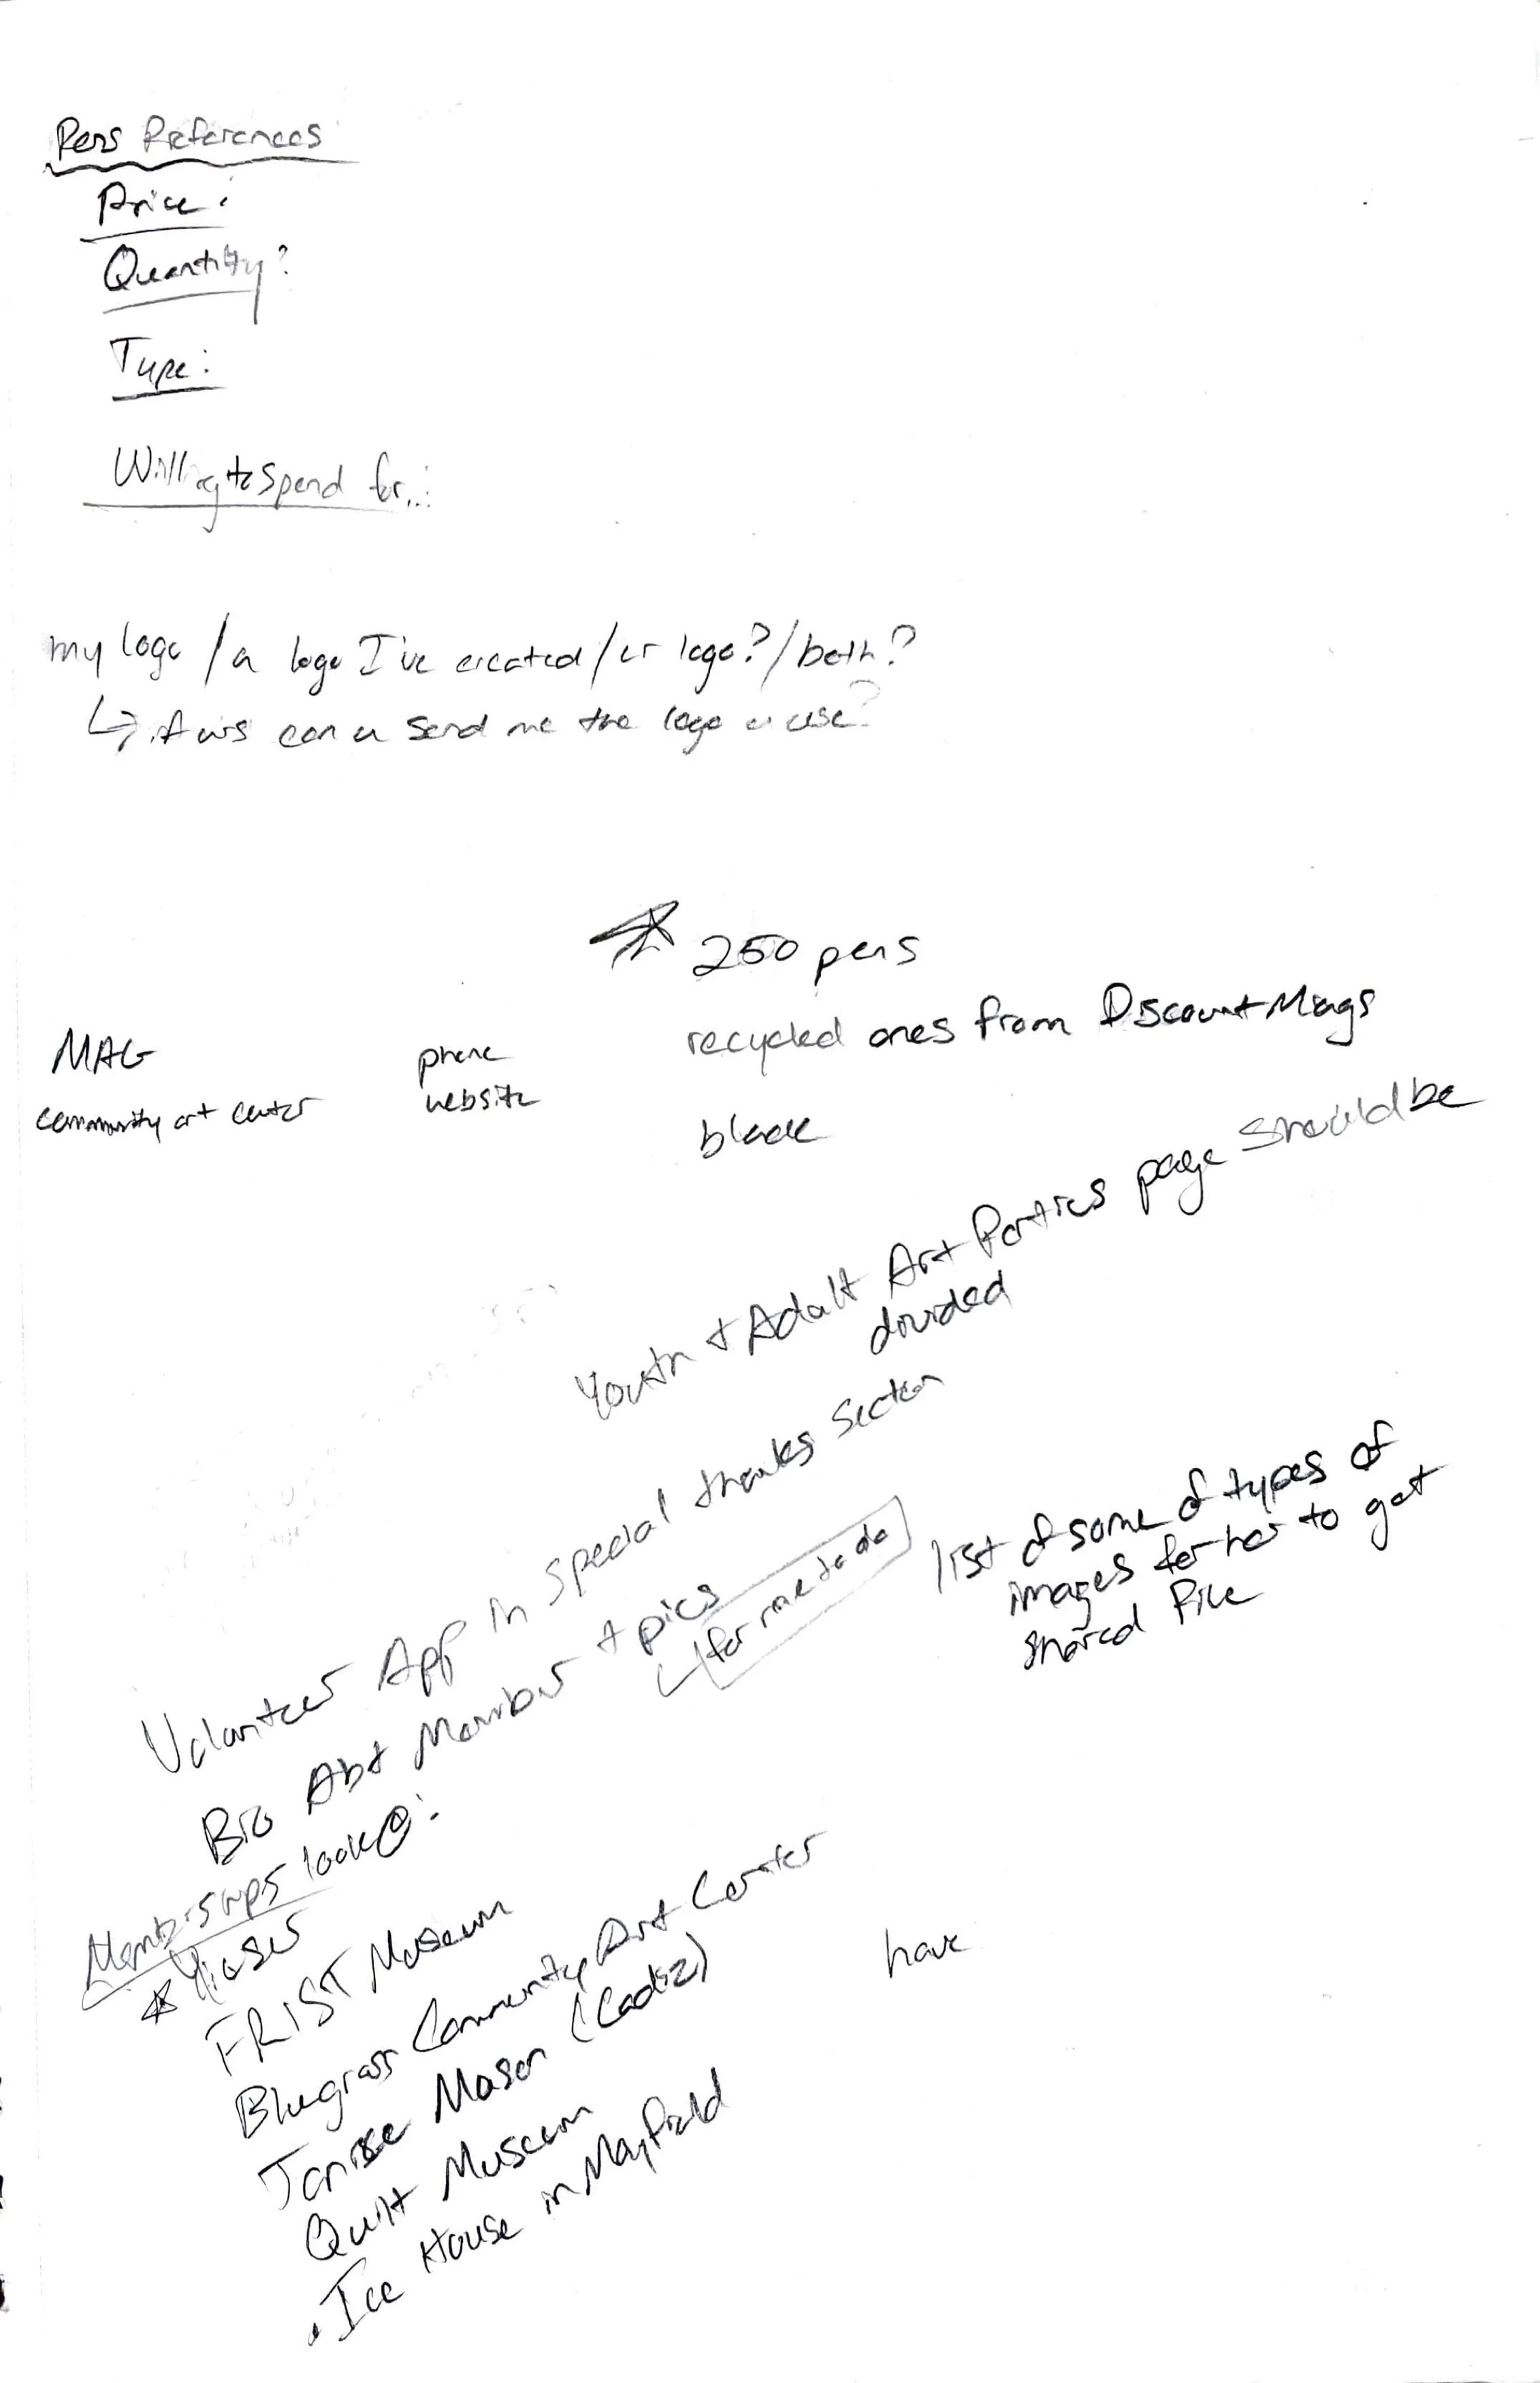 Pens References
Price:
Quantity?
Type:
Willing to spend for...:
my logo / a logo I've created / ur logo? / both?
↳ if urs can u send me the logo u use?
250 pens
recycled ones from DiscountMugs
black
MAG
community art center
phone
website
Youth + Adult Art Parties page should be
divided
Volunteer App in special thanks section
Bio Abt Member + pics
↳ for me to do
list of some of types of
images for her to get
shared file
Memberships look@:
Yieser
FRIST Museum
Bluegrass Community Art Center
Janice Mason (Cadiz)
Quilt Museum
Ice House in Mayfield
have